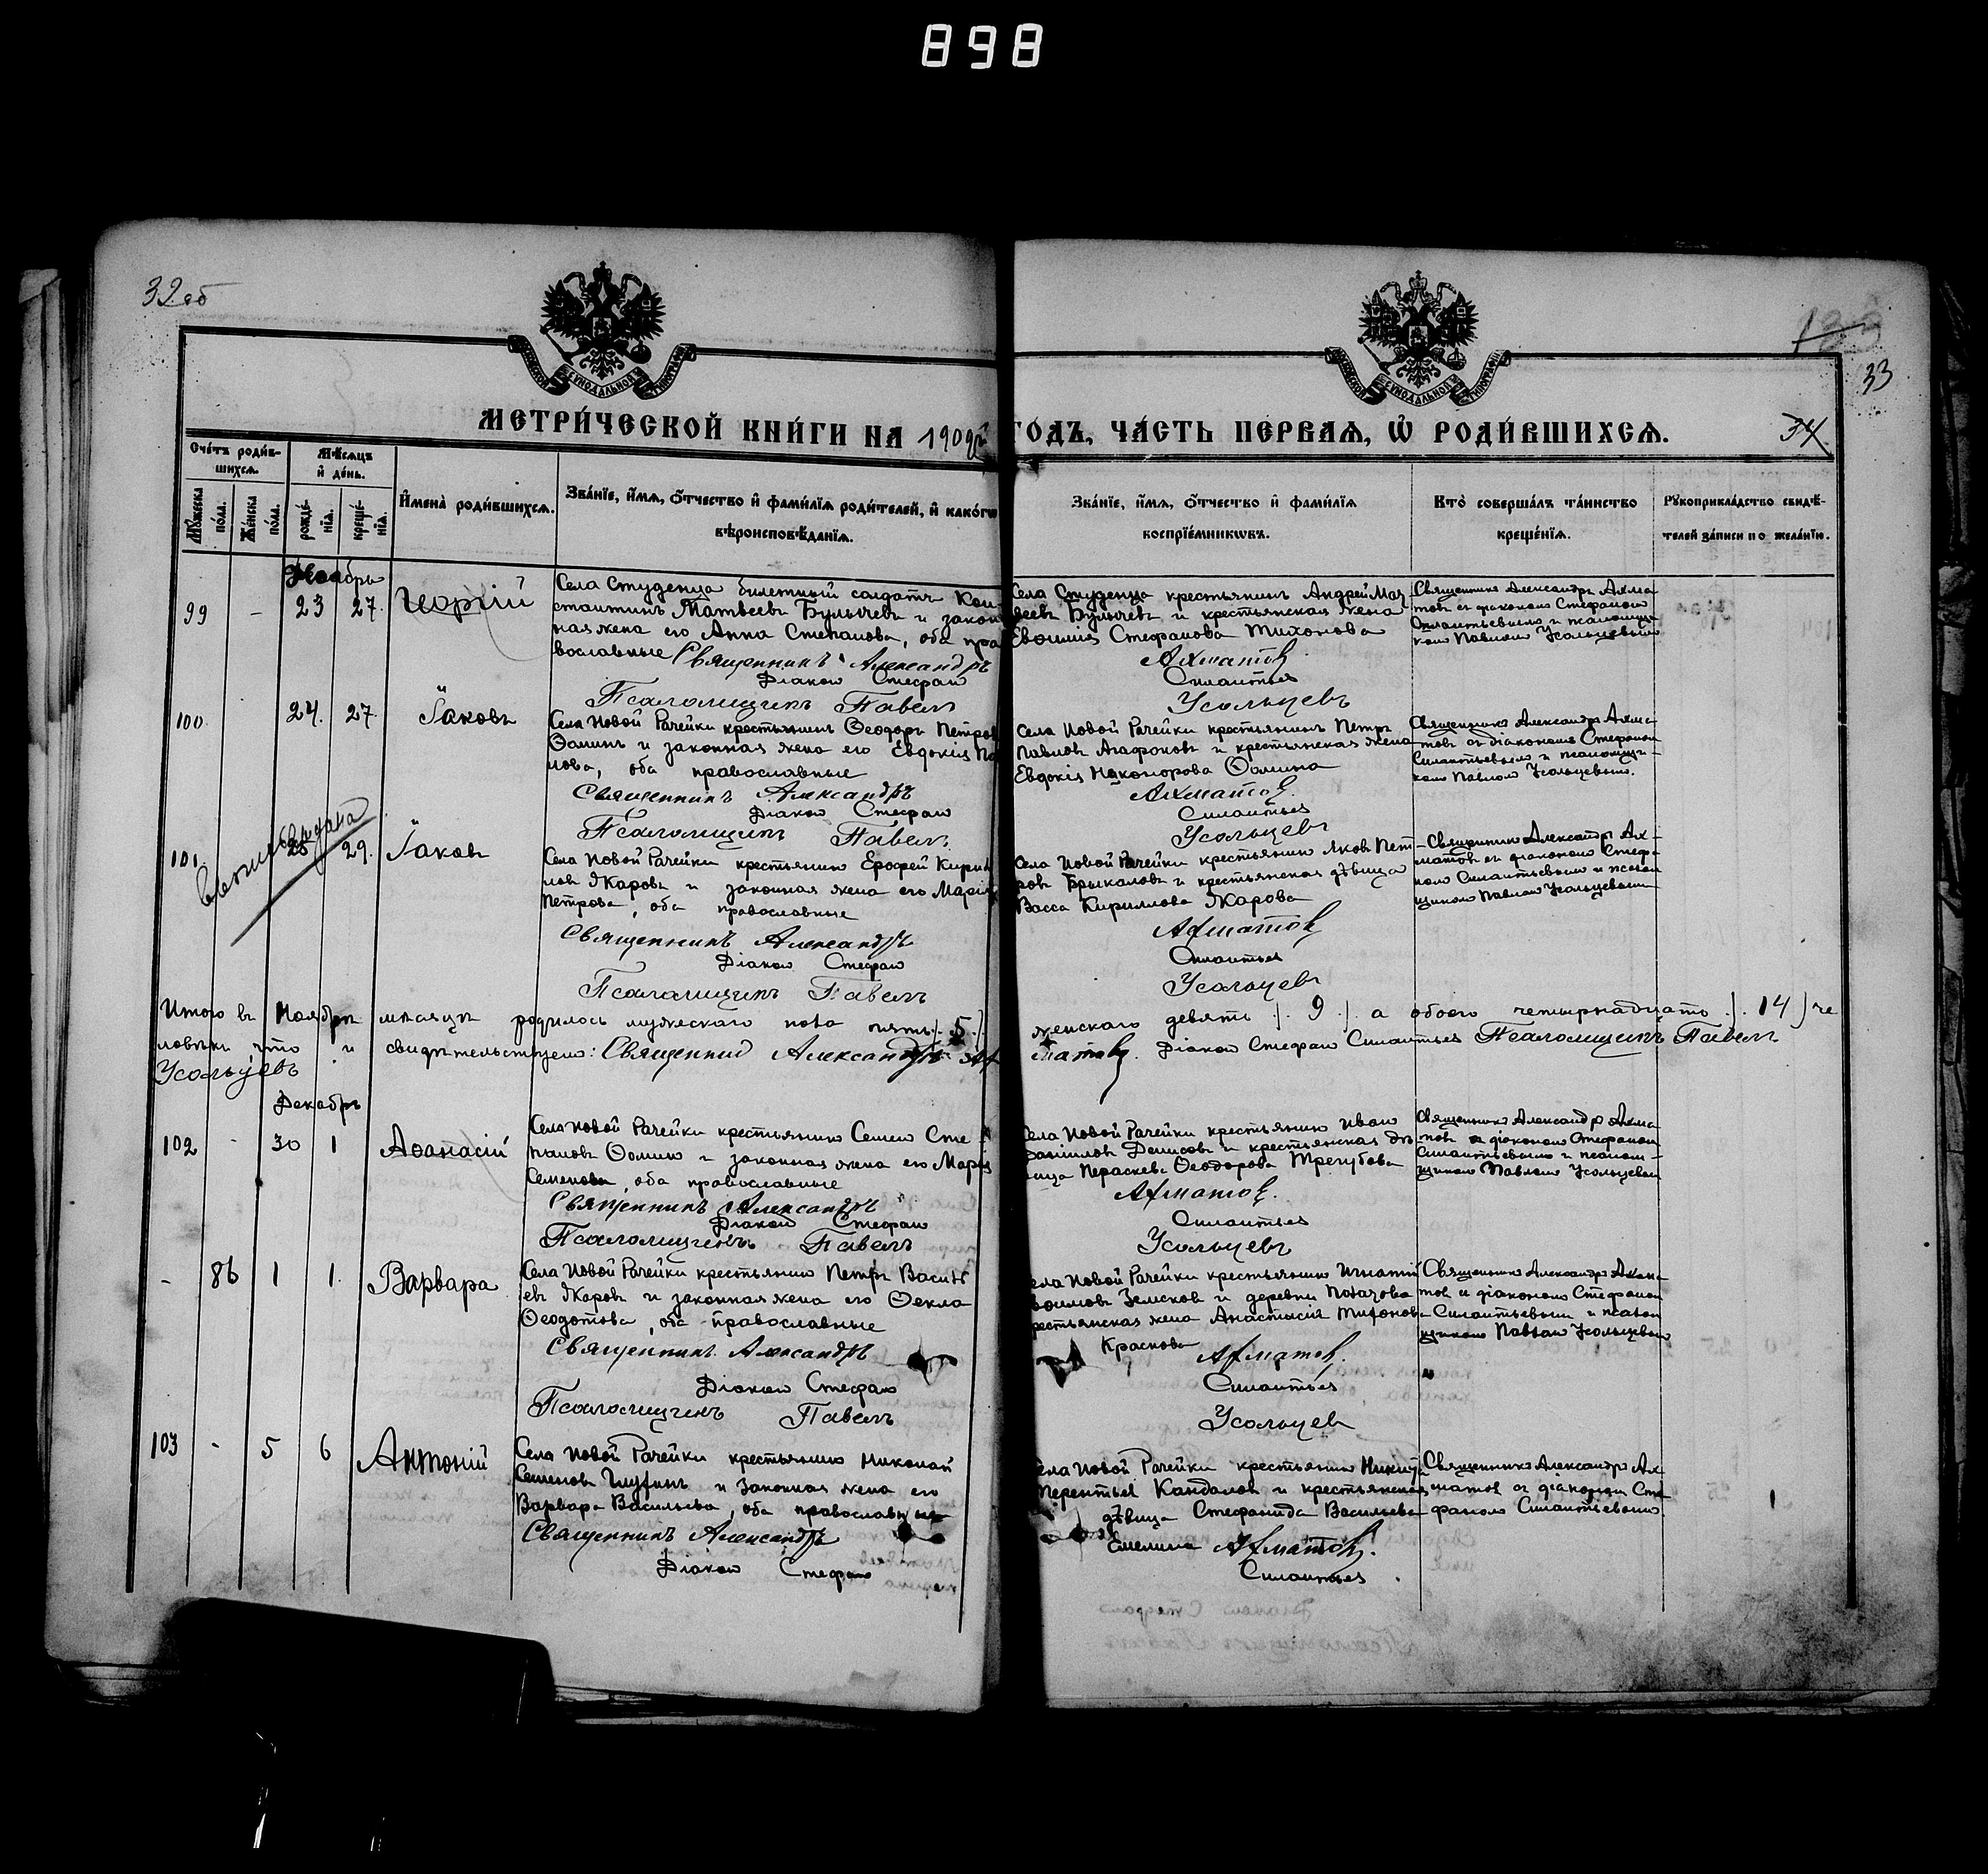 898
32об
133
33
34
МЕТРИ́ЧЕСКОЙ КНИ́ГИ НА 1909й ГОДЪ, ЧА́СТЬ ПЕ́РВАѦ, Ѡ РОДИ́ВШИХСѦ.
Сче́тъ роди́в-
шихсѧ.
Мѣ́сѧцъ
и҆ де́нь.
Мꙋ́жеска
по́ла.
Же́нска
по́ла.
рожде́-
нїѧ.
креще́-
нїѧ.
И҆мена̀ роди́вшихсѧ.
Зва́нїе, и҆́мѧ, ѻ҆́тчество и҆ фами́лїѧ роди́телей, и҆ како́гѡ
вѣроисповѣ́данїѧ.
Зва́нїе, и҆́мѧ, ѻ҆́тчество и҆ фами́лїѧ
воспрїе́мникѡвъ.
Кто̀ соверша́лъ та́инство
креще́нїѧ.
Рꙋкоприкла́дство свидѣ́-
телей за́писи по жела́нїю.
Ноябрь
99 - 23 27. Георгій
Села Студенца билетный солдатъ Кон-
стантинъ Матвеевъ Булычевъ и закон
ная жена его Анна Степанова, оба пра
вославные Священникъ Александръ
Діаконъ Стефанъ
Псаломщикъ Павелъ
Села Студенца крестьянинъ Андрей Мат
веевъ Булычевъ и крестьянская жена
Евѳимия Стефанова Тихонова
Ахматовъ
Силантьев
Усольцевъ
Священникъ Александръ Ахма
товъ съ діакономъ Стефаномъ
Силантьевымъ и псаломщи
комъ Павломъ Усольцевымъ
100. 24. 27. Іаковъ
Села Новой Рачейки крестьянинъ Ѳеодоръ Петров
Ѳоминъ и законная жена его Евдокія Па
нова, оба православные
Священникъ Александръ
Діаконъ Стефанъ
Псаломщикъ Павелъ
Села Новой Рачейки крестьянинъ Петръ
Павловъ Агафоновъ и крестьянская жена
Евдокія Никонорова Ѳомина
Ахматов.
Силантьев
Усольцевъ
Священникъ Александръ Ахма-
товъ съ діакономъ Стефаном
Силантьевымъ и псаломщи-
комъ Павломъ Усольцевым.
101. 25 29. Іаковъ
выпись выдана
Села Новой Рачейки крестьянинъ Ерофей Кирил
ловъ Жаровъ и законная жена его Марія
Петрова, оба православные
Священникъ Александръ
Діаконъ Стефанъ
Псаломщикъ Павелъ
Села Новой Рачейки крестьянинъ Яковъ Пет-
ровъ Брыкаловъ и крестьянская дѣвица
Васса Кириллова Жарова
Ахматовъ
Силантьев
Усольцевъ
Священникъ Александръ Ах-
матовъ съ діакономъ Стефа-
номъ Силантьевымъ и псалом
щикомъ Павломъ Усольцевымъ
Итого въ Ноябрѣ мѣсяцѣ родилось мужескаго пола пять /. 5 ./ женскаго девять /. 9 ./ а обоего четырнадцать /. 14 ) че
ловѣкъ что и свидѣтельствуемъ: Священник Александръ Ахматовъ. Діаконъ Стефанъ Силантьев Псаломщикъ Павелъ
Усольцевъ
Декабрь
102 - 30 1 Аѳанасій
Села Новой Рачейки крестьянинъ Семенъ Сте-
пановъ Ѳоминъ и законная жена его Марія
Семенова, оба православные
Священникъ Александръ
Діаконъ Стефанъ
Псаломщикъ Павелъ
Села Новой Рачейки крестьянинъ Иванъ
Даниловъ Денисовъ и крестьянская дѣ
вица Параскева Ѳеодорова Трегубова
Ахматов.
Силантьев
Усольцевъ
Священникъ Александр Ахма
товъ съ діакономъ Стефаном
Силантьевымъ и псалом-
щикомъ Павломъ Усольцевым
- 86 1 1. Варвара
Села Новой Рачейки крестьянинъ Петръ Василь
евъ Жаровъ и законная жена его Ѳекла
Ѳеодотова, оба православные
Священникъ Александръ
Діаконъ Стефанъ
Псаломщикъ Павелъ
Села Новой Рачейки крестьянинъ Игнатій
Земсков и деревни
крестьянская жена Анастасія Тихонова
Краснова
Ахматов.
Силантьев
Усольцев
Священникъ Александръ Ахма-
товъ и діаконом Стефаном
Силантьевымъ и псалом
щикомъ Павлом Усольцевым
103 - 5 6 Антоній
Села Новой Рачейки крестьянинъ Николай
Семенов и законная жена его
Варвара Васильева, оба православные
Священникъ Александръ
Діаконъ Стефанъ
Села Новой Рачейки крестьянинъ Никита
Терентьев Кандалов и крестьянская
дѣвица Стефанида Васильева
Емелина Ахматовъ.
Силантьев.
Священникъ Александръ Ах
матов съ діакономъ Сте
фаномъ Силантьевымъ